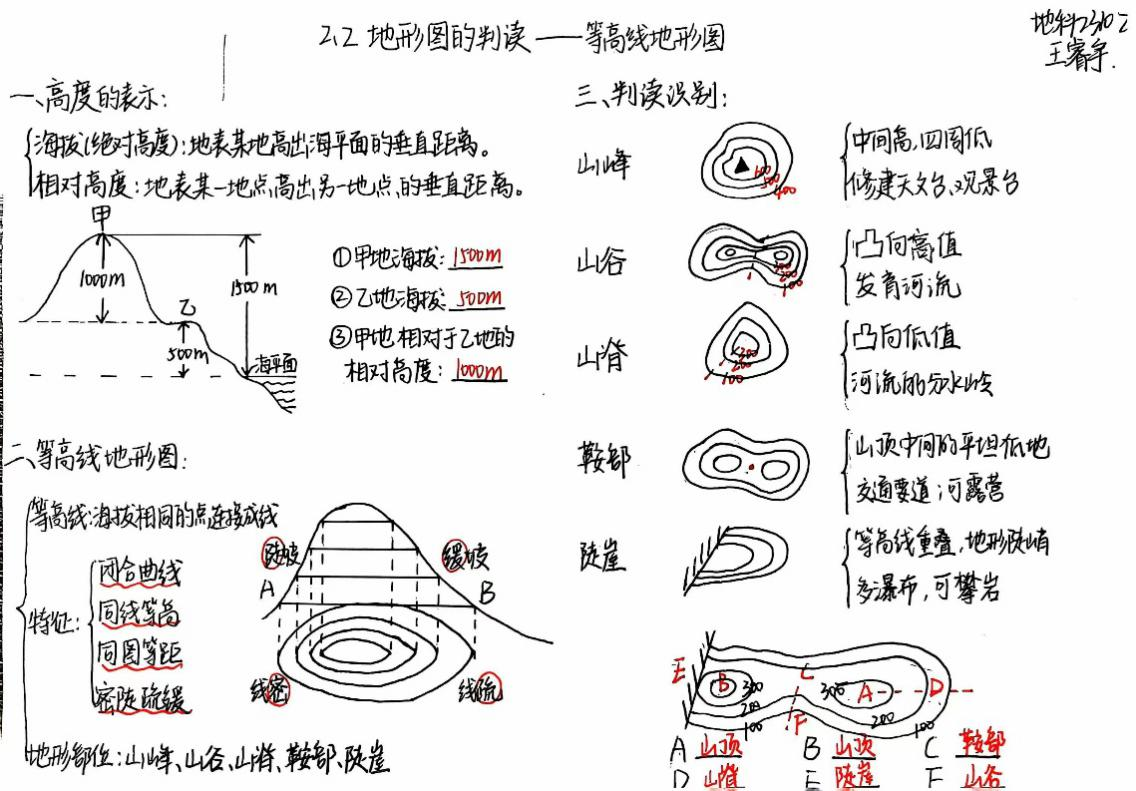 2.2 地形图的判读——等高线地形图
地科23102
王睿宇.
一、高度的表示:
海拔(绝对高度):地表某地高出海平面的垂直距离。
相对高度:地表某一地点高出另一地点的垂直距离。
甲
1000m
1500m
乙
500m
海平面
①甲地海拔: 1500m
②乙地海拔: 500m
③甲地相对于乙地的
相对高度: 1000m
二、等高线地形图:
等高线:海拔相同的点连接成线
特征:
闭合曲线
同线等高
同图等距
密陡疏缓
陡坡
缓坡
A
B
线密
线疏
地形部位:山峰、山谷、山脊、鞍部、陡崖
三、判读识别:
山峰
中间高,四周低
修建天文台、观景台
山谷
300
200
100
凸向高值
发育河流
山脊
300
200
100
凸向低值
河流的分水岭
鞍部
山顶中间的平坦低地
交通要道;可露营
陡崖
等高线重叠,地形陡峭
多瀑布,可攀岩
E
B
300
200
100
C
F
300
A
200
D
100
A 山顶 B 山顶 C 鞍部
D 山脊 E 陡崖 F 山谷